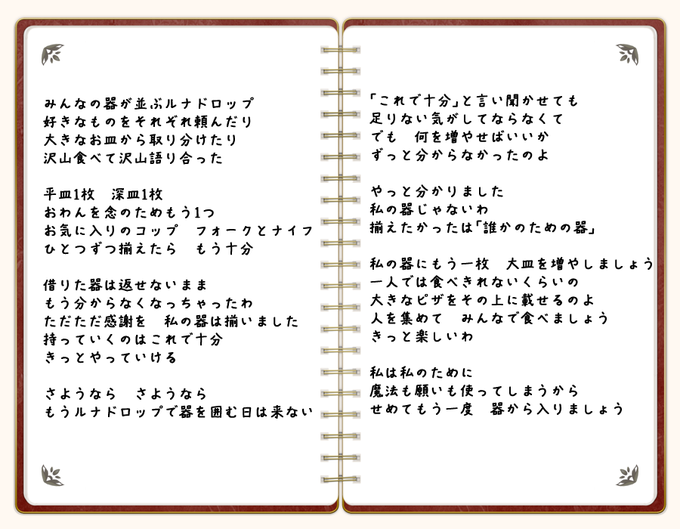 みんなの器が並ぶルナドロップ
好きなものをそれぞれ頼んだり
大きなお皿から取り分けたり
沢山食べて沢山語り合った
平皿1枚　深皿1枚
おわんを念のためもう1つ
お気に入りのコップ　フォークとナイフ
ひとつずつ揃えたら　もう十分
借りた器は返せないまま
もう分からなくなっちゃったわ
ただただ感謝を　私の器は揃いました
持っていくのはこれで十分
きっとやっていける
さようなら　さようなら
もうルナドロップで器を囲む日は来ない
「これで十分」と言い聞かせても
足りない気がしてならなくて
でも　何を増やせばいいか
ずっと分からなかったのよ
やっと分かりました
私の器じゃないわ
揃えたかったは「誰かのための器」
私の器にもう一枚　大皿を増やしましょう
一人では食べきれないくらいの
大きなピザをその上に載せるのよ
人を集めて　みんなで食べましょう
きっと楽しいわ
私は私のために
魔法も願いも使ってしまうから
せめてもう一度　器から入りましょう